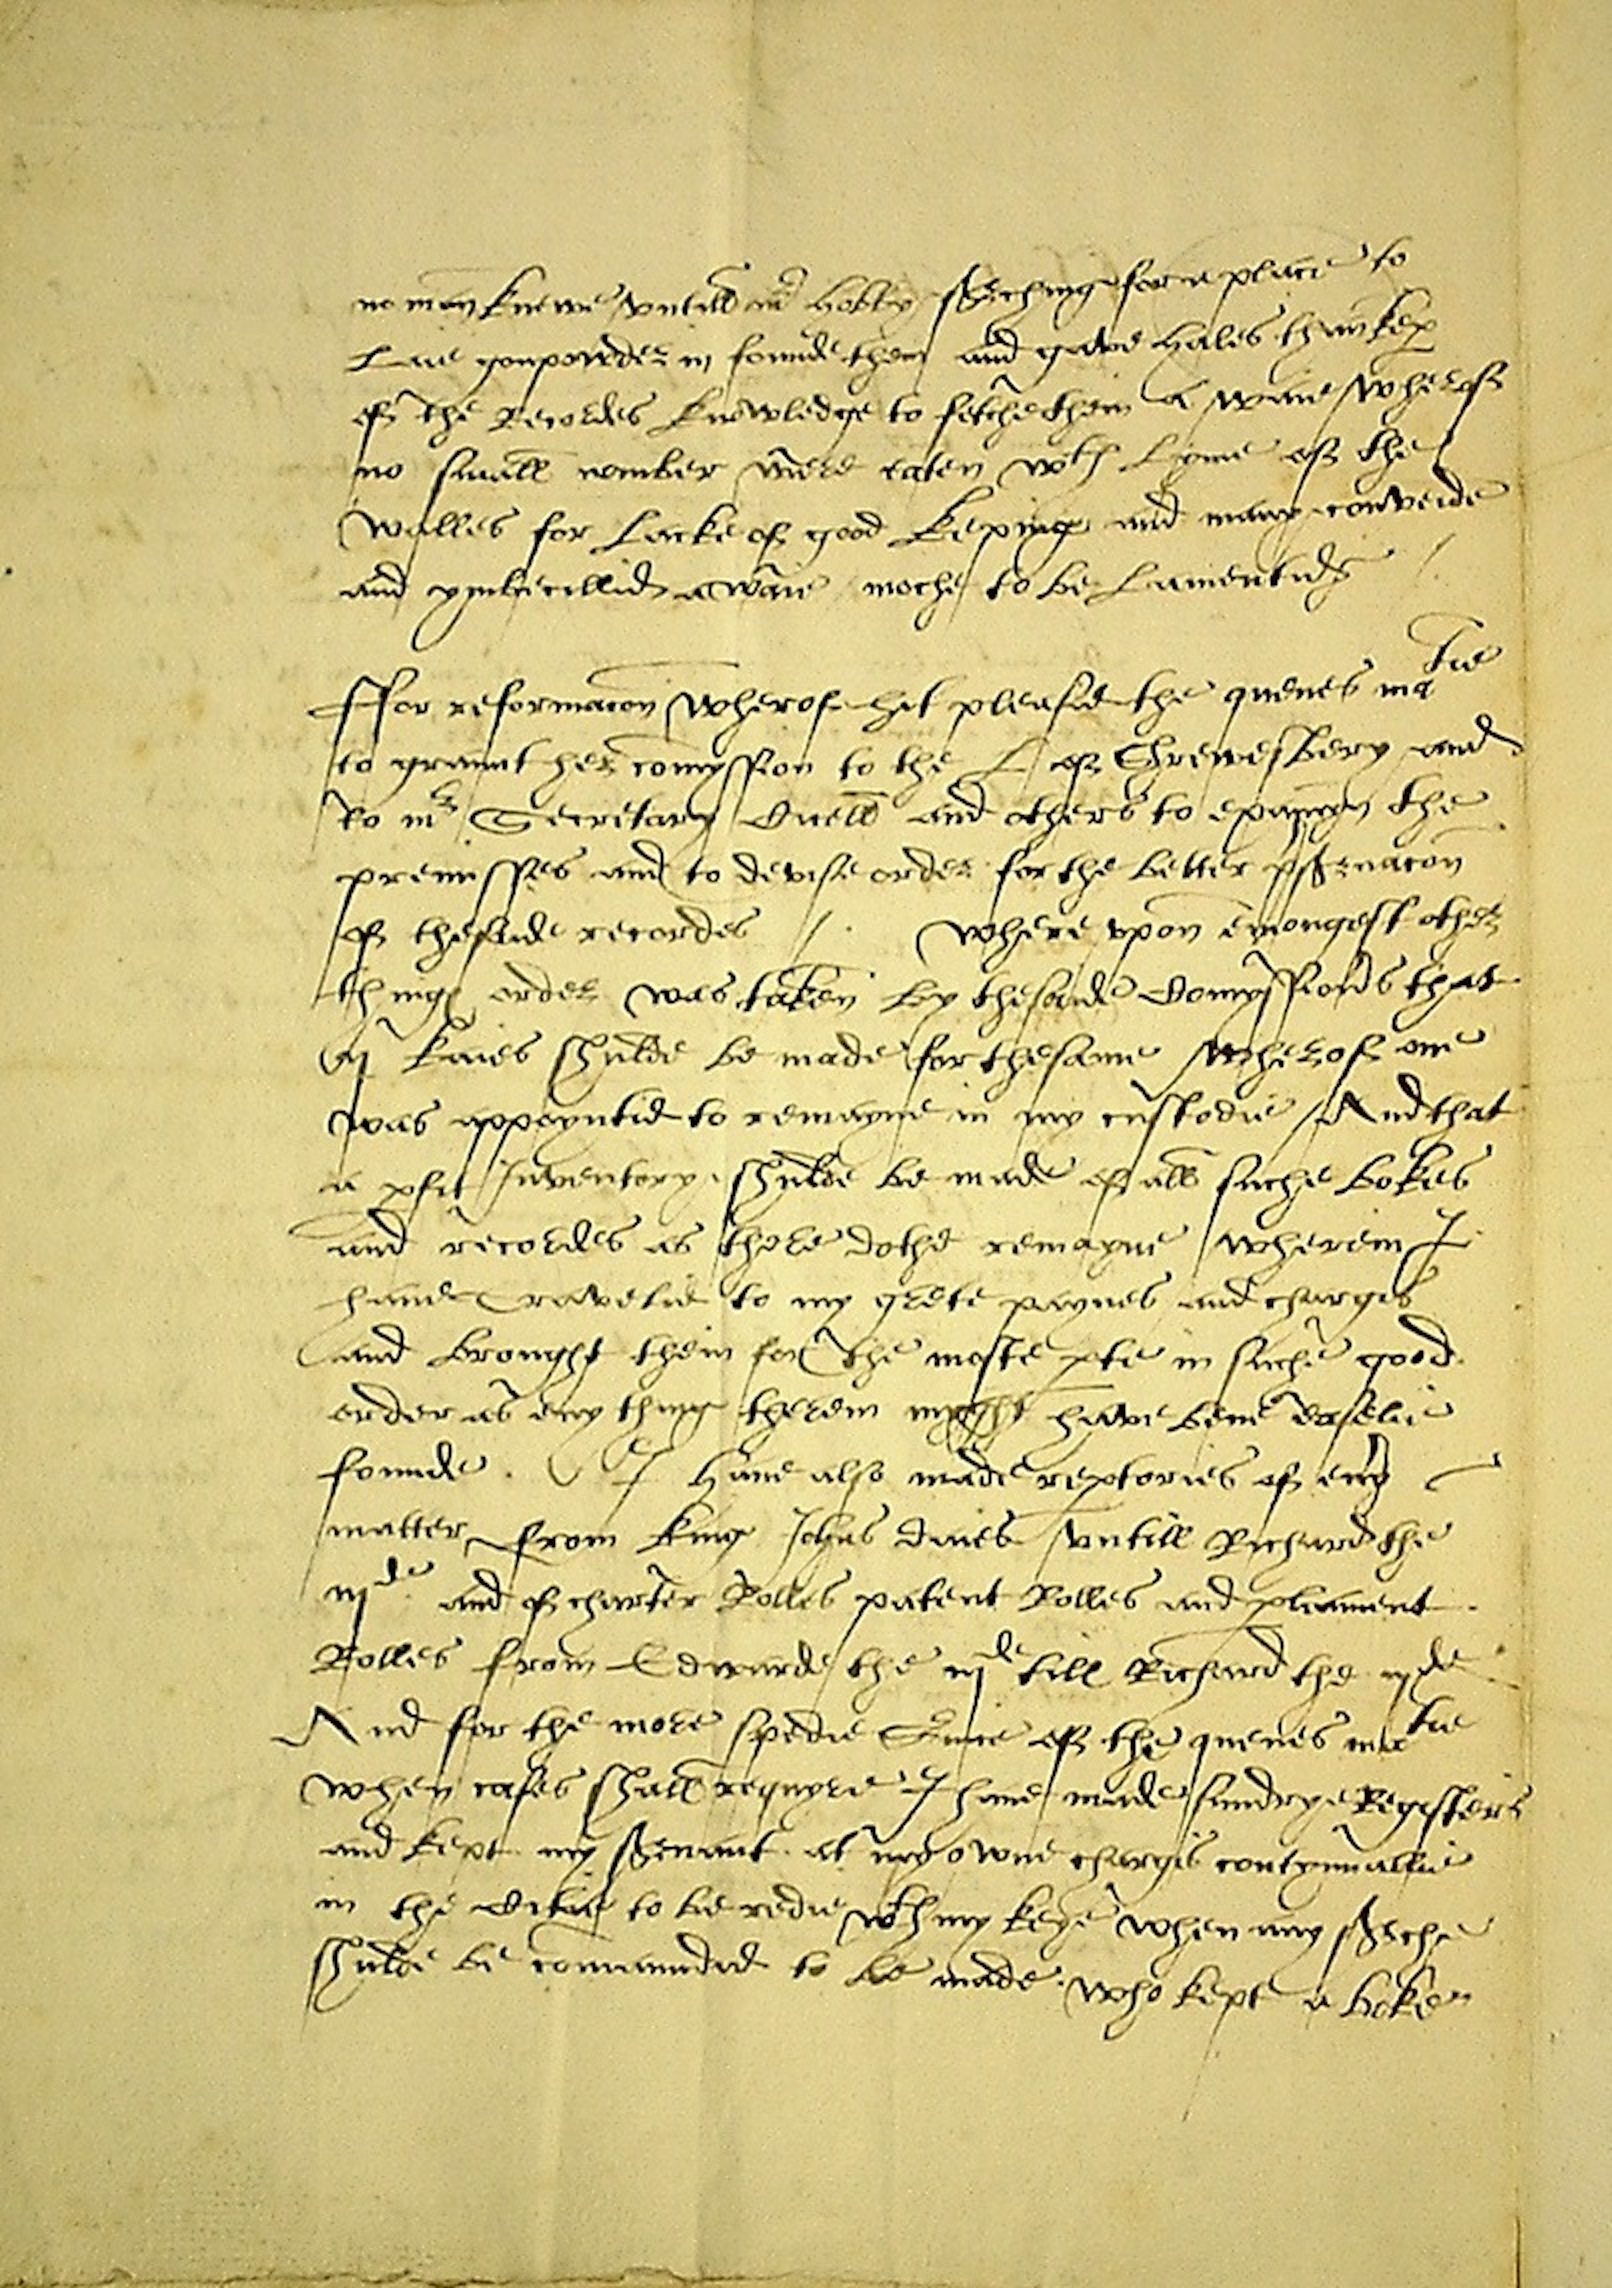 no man knewe / vntill mr hobby serching for a place to
Laie gonpowder in founde them and gave Hales then keper
of the Recordes knowledge to fetche them a waie / wherof
no small nomber were eaten wth Lyme of the
walles for Lacke of good keping and many conveide
and ymbecellid awaie / moche to be Lamentid /.
ffor reformacon wherof hit pleasid the quenes matie
to graunt her comyssion to the L of Shrewesbery and
to mr Secretary Bnell and others to examyn the
premisses and to devise order for the better pservacon
of thesaide recordes /. where vpon emongest other
things order was taken by thesaide Comyssioners that
iij kaies shulde be made for thesame / wherof one
was appoyntid to remayne in my custodie / And that
a pfit Inventory shulde be made of all suche bokes
and recordes as there dothe remayne / wherein I
haue Travelid to my grete paynes and charges
and brought them for the moste pte in suche good
order as eny thing therein myght have bene easelie
founde . I Haue also made reptories of euy
matter from king Johns daies vntill Richard the
iijde and of charter Rolles patent Rolles and pliament
Rolles from Edwarde the iijde till Richard the iijde
And for the more spedie Suice of the quenes matie
when cases shall requyre I haue made sundrye Registers
and kept my seruant at my owne chargis contynuallie
in the Citie to be redie wth my keye when any serche
shulde be comaunded to be made . who kept a boke